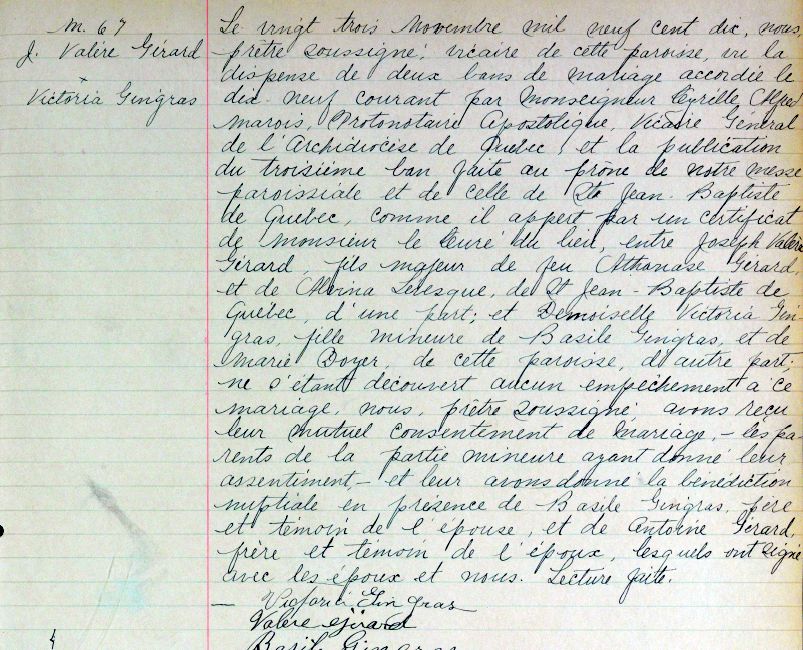 M. 67
J. Valère Gérard
x
Victoria Gingras
Le vingt trois Novembre mil neuf cent dix, nous,
prêtre soussigné, vicaire de cette paroisse, vu la
dispense de deux bans de mariage accordée le
dix-neuf courant par Monseigneur Cyrille Alfred
Marois, Protonotaire Apostolique, Vicaire Général
de l'Archidiocèse de Québec, et la publication
du troisième ban faite au prône de notre messe
paroissiale et de celle de St Jean-Baptiste
de Québec, comme il appert par un certificat
de Monsieur le Curé du lieu, entre Joseph Valère
Gérard, fils majeur de feu Athanase Gérard,
et de Alvina Levesque, de St Jean-Baptiste de
Québec, d'une part; et Demoiselle Victoria Gin-
gras, fille mineure de Basile Gingras, et de
Marie Boyer, de cette paroisse, d'autre part;
ne s'étant découvert aucun empêchement à ce
mariage, nous, prêtre soussigné, avons reçu
leur mutuel consentement de mariage, – les pa-
rents de la partie mineure ayant donné leur
assentiment – et leur avons donné la bénédiction
nuptiale en présence de Basile Gingras, père
et témoin de l'épouse, et de Antoine Gérard,
frère et témoin de l'époux, lesquels ont signé
avec les époux et nous. Lecture faite.
Victoria Gingras
Valère Girard
Basile Gingras